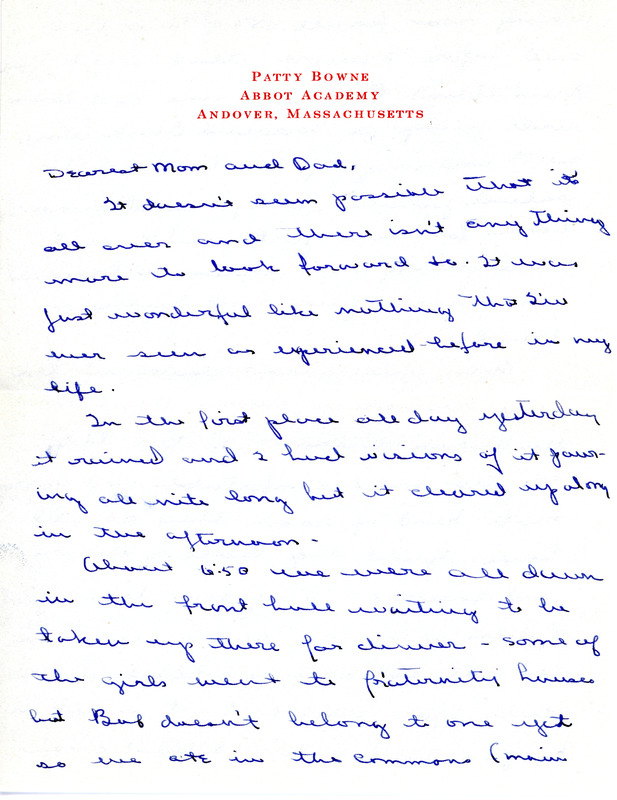 PATTY BOWNE
ABBOT ACADEMY
ANDOVER, MASSACHUSETTS
Dearest Mom and Dad,
It doesn't seem possible that its
all over and there isn't any thing
more to look forward to. It was
just wonderful like nothing tho I'v
ever seen or experienced before in my
life.
In the first place all day yesterday
it rained and I had visions of it pour-
ing all nite long but it cleared up along
in the afternoon.
About 6:50 we were all down
in the front hall waiting to be
taken up there for dinner - some of
the girls went to fraternity houses
but Bob doesn't belong to one yet
so we ate in the commons (main